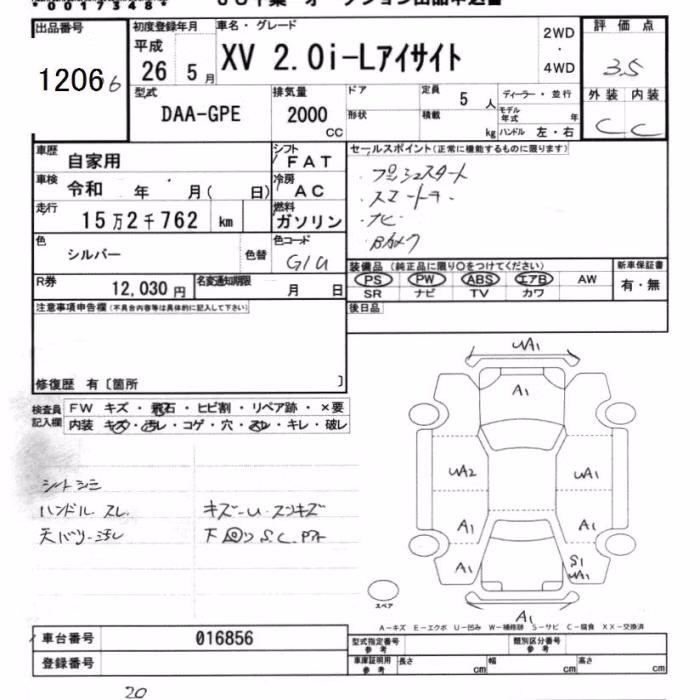 出品番号
12066
初度登録年月
平成
26 5月
車名・グレード
XV 2.0i-Lアイサイト
2WD
・
4WD
評価点
3.5
外装 内装
C C
型式
DAA-GPE
排気量
2000
CC
ドア
形状
定員
5 人
積載
kg
ディーラー・並行
モデル年式 年
ハンドル 左・右
車歴
自家用
シフト
FAT
車検
令和 年 月( 日)
冷房
AC
走行
15万2千762 km
燃料
ガソリン
色
シルバー
色替
色コード
G1U
R券
12,030円
名変通知期限
月 日
セールスポイント(正常に機能するものに限ります)
・プッシュスタート
・スマートキー
・ナビ
・Bカメラ
装備品(純正品に限り○をつけてください)
PS PW ABS エアB AW
SR ナビ TV カワ
新車保証書
有・無
後日品
注意事項申告欄(不具合内容等は具体的に記入して下さい)
修復歴 有〔箇所 〕
検査員記入欄
FW キズ・飛石・ヒビ割・リペア跡・×要
内装 キズ・汚レ・コゲ・穴・スレ・キレ・破レ
シートシミ
ハンドルスレ
天バリ汚レ
キズ-U・スリキズ
下回りS.C.
UA1
A1
UA2
UA1
A1
A1
A1
S1
UA1
A1
スペア
A-キズ E-エクボ U-凹み W-補修跡 S-サビ C-腐食 XX-交換済
車台番号
016856
登録番号
型式指定番号
参考
類別区分番号
参考
車庫証明用
参考
長さ cm
幅 cm
高さ cm
20